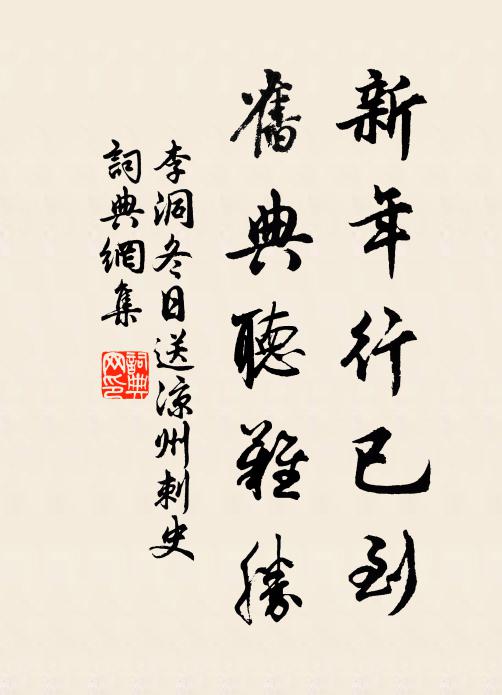 新年行已到
舊典聽難勝
李洞冬日送凉州刺史
詞典網集
詞典网印